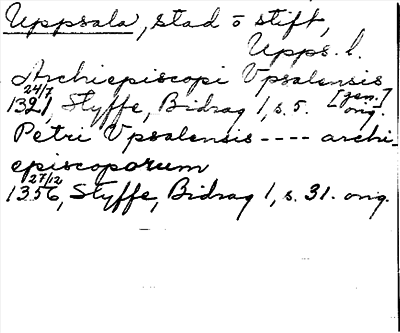 Uppsala, stad o stift,
Upps. l.
Archiepiscopi Vpsalensis
24/7 [gen.]
1321, Styffe, Bidrag 1, s. 5. orig.
Petri Vpsalensis ---- archi-
episcoporum
27/12
1356, Styffe, Bidrag 1, s. 31. orig.